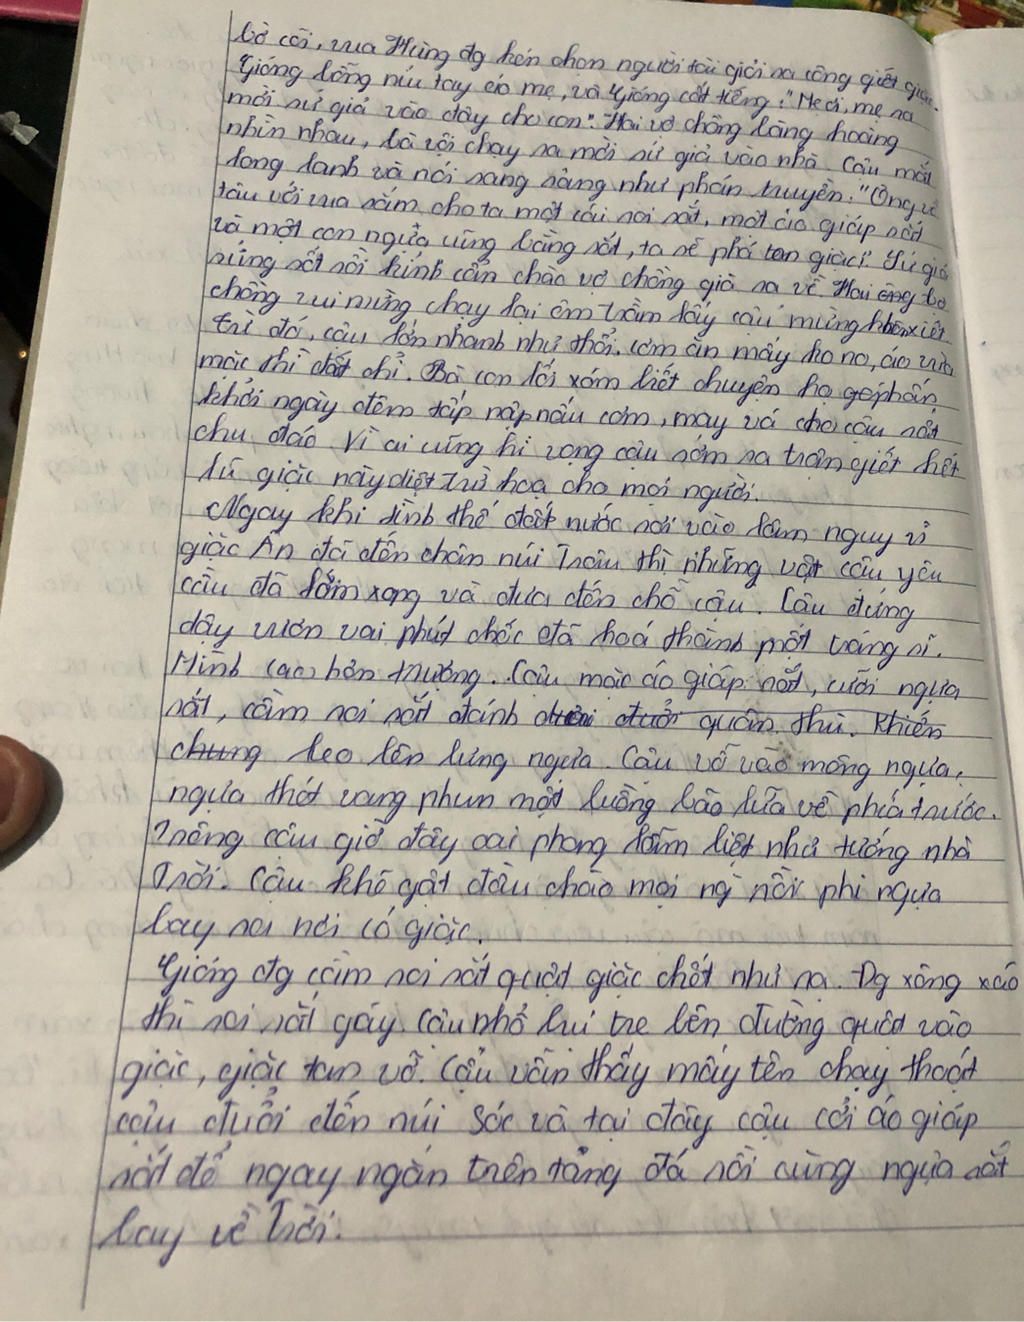 bờ cõi, vua Hùng đg kén chọn người tài giỏi ra công giết giặc.
Gióng bỗng níu tay áo mẹ, và Gióng cất tiếng: "Mẹ ơi, mẹ ra
mời sứ giả vào đây cho con". Hai vợ chồng bàng hoàng
nhìn nhau, bà vội chạy ra mời sứ giả vào nhà. Cậu mắt
long lanh và nói rang rảng như phán truyền: "Ông về
tâu với vua rằm cho ta một cái roi sắt, một áo giáp sắt
và một con ngựa cũng bằng sắt, ta sẽ phá tan giặc". Sứ giả
sửng sốt rồi kính cẩn chào vợ chồng già ra về. Hai ông bà
chồng vui mừng chạy lại ôm trầm lấy cậu mừng khôn xiết.
Từ đó, cậu lớn nhanh như thổi, cơm ăn mấy ko no, áo vừa
mặc thì đứt chỉ. Bà con lối xóm biết chuyện họ góp phần
khởi ngày đêm tấp nập nấu cơm, may vá cho cậu rất
chu đáo. Vì ai cũng hi vọng cậu sớm ra trận giết hết
lũ giặc này diệt trừ hoạ cho mọi người.
Ngay khi tình thế đất nước rơi vào lâm nguy vì
giặc Ân đã đến chân núi Trâu thì những vật cậu yêu
cầu đã làm xong và đưa đến chỗ cậu. Cậu đứng
dậy vươn vai phút chốc đã hoá thành một tráng sĩ.
Mình cao hơn trượng. Cậu mặc áo giáp sắt, cưỡi ngựa
sắt, cầm roi sắt đánh đuổi quân thù. Khiến
chung leo lên lưng ngựa. Cậu vỗ vào mông ngựa,
ngựa thét vang phun một luồng bão lửa về phía trước.
Trông cậu giờ đây oai phong lẫm liệt như tướng nhà
Trời. Cậu khẽ gật đầu chào mọi ng rồi phi ngựa
bay ra nơi có giặc.
Gióng đg cầm roi sắt quật giặc chết như rạ. Đg xông xáo
thì roi sắt gãy. Cậu nhổ bụi tre bên đường quật vào
giặc, giặc tan vỡ. Cậu vẫn thấy mấy tên chạy thoát
cậu đuổi đến núi Sóc và tại đây cậu cởi áo giáp
sắt để ngay ngắn trên tảng đá rồi cùng ngựa sắt
bay về trời.